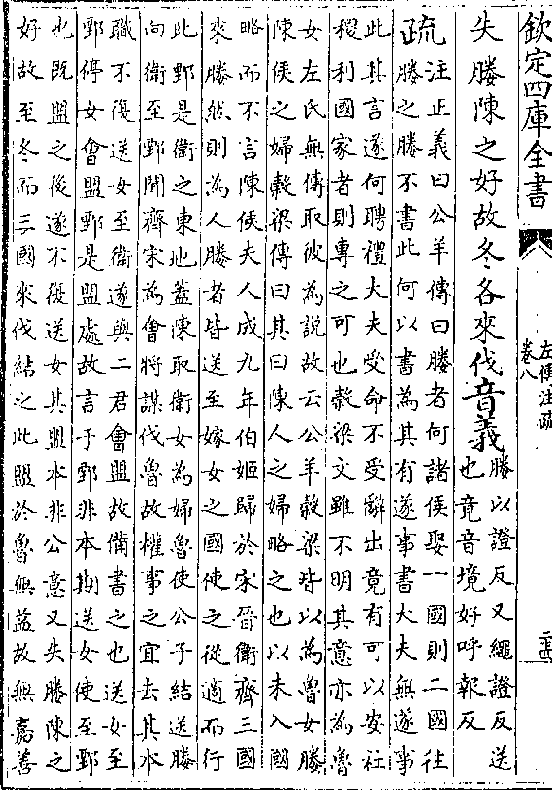 欽定四庫全書
左傳注疏
卷八
失媵陳之好故冬各來伐音義媵以證反又繩證反送
也竟音境好呼報反
疏注正義曰公羊傳曰媵者何諸侯娶一國則二國往
媵之媵不書此何以書為其有遂事書大夫無遂事
此其言遂何聘禮大夫受命不受辭出竟有可以安社
稷利國家者則專之可也穀梁文雖不明其意亦為魯
女左氏無傳取彼為說故云公羊穀梁皆以為魯女媵
陳侯之婦穀梁傳曰其曰陳人之婦略之也以未入國
略而不言陳侯夫人成九年伯姬歸於宋晉衛齊三國
來媵然則為人媵者皆送至嫁女之國使之從適而行
此鄄是衛之東地蓋陳取衛女為婦魯使公子結送媵
向衛至鄄聞齊宋為會將謀伐魯故權事之宜去其本
職不復送女至衛遂與二君會盟故備書之也送女至
鄄停女會盟鄄是盟處故言于鄄非本期送女使至鄄
也既盟之後遂不復送女其盟本非公意又失媵陳之
好故至冬而三國來伐結之此盟於魯無益故無嘉善